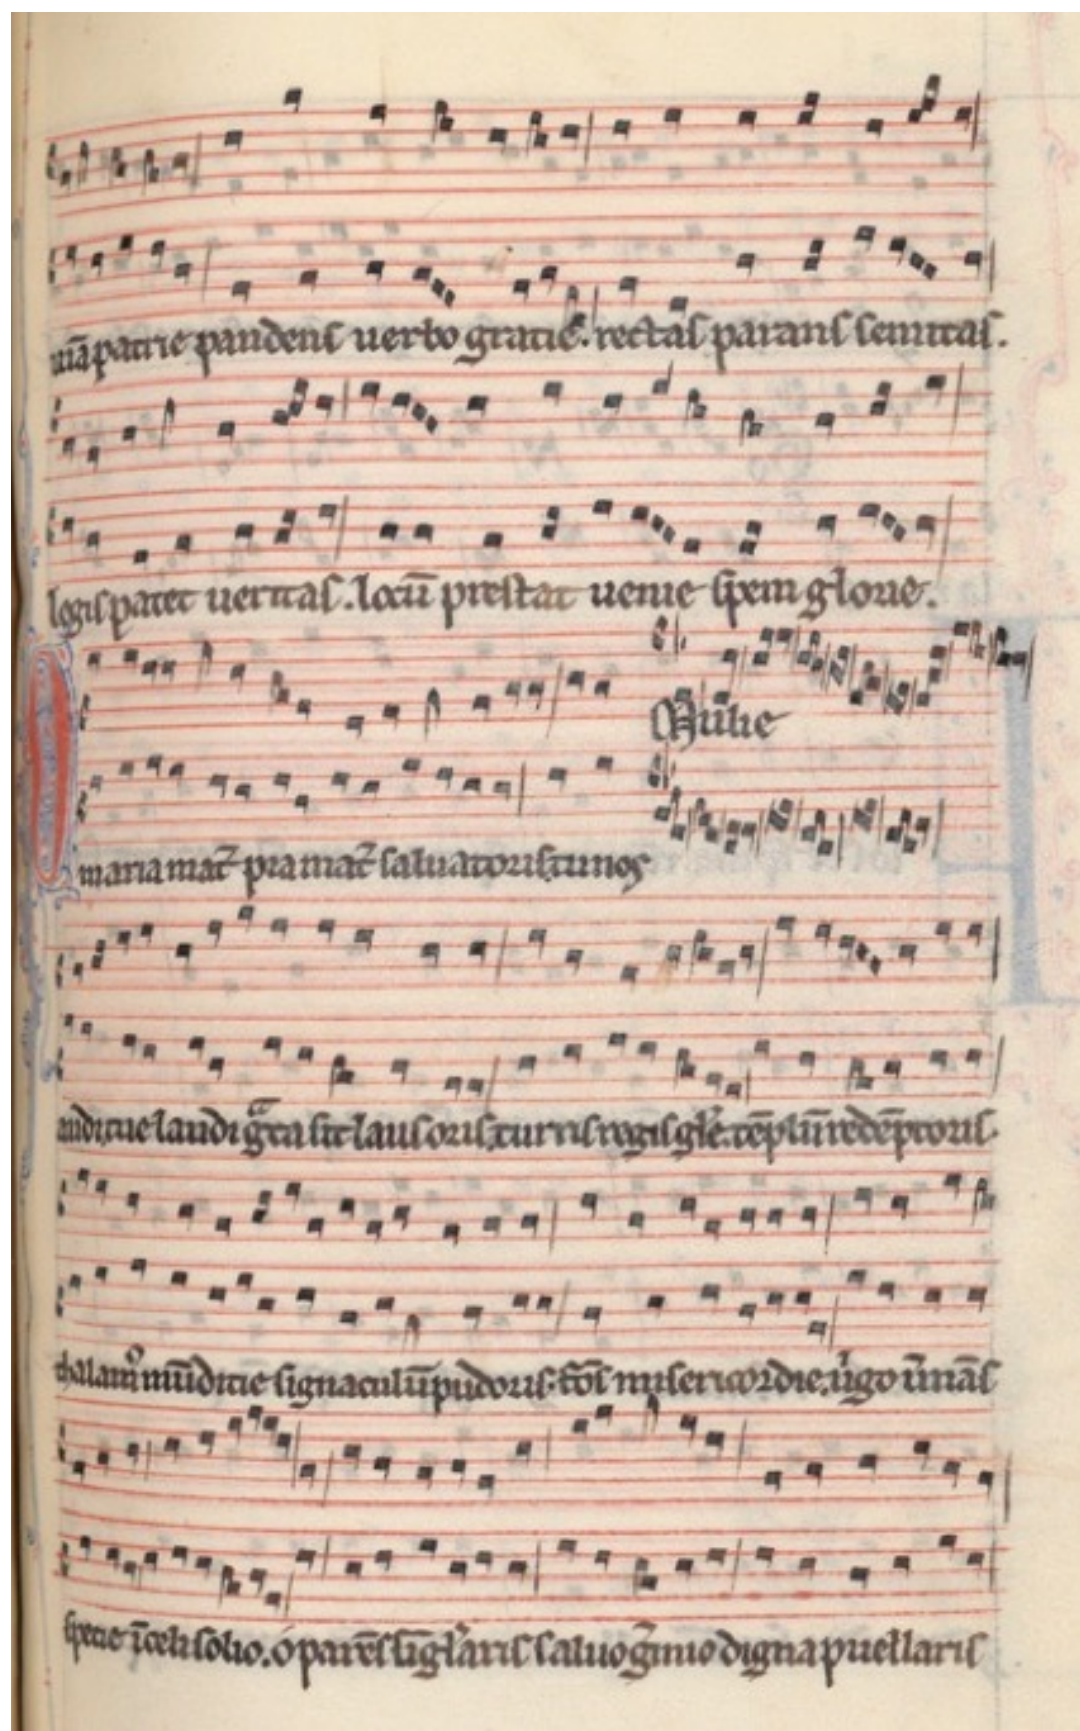 uiā patrie pandens uerbo gratie. rectas parans semitas.
legis patet ueritas. locū prestat uenie spem glorie.
O
maria mat̄ pia mat̄ saluatoris. tu nos
audi. tue laudi gͣta sit laus oris. turris regis gl̄e. tēplū redēptoris.
thalamꝰ mūdicie signaculū pudoris. fōs misericordie.
specie ī celi solio. o parēs sīgl̄aris saluo digna puellaris